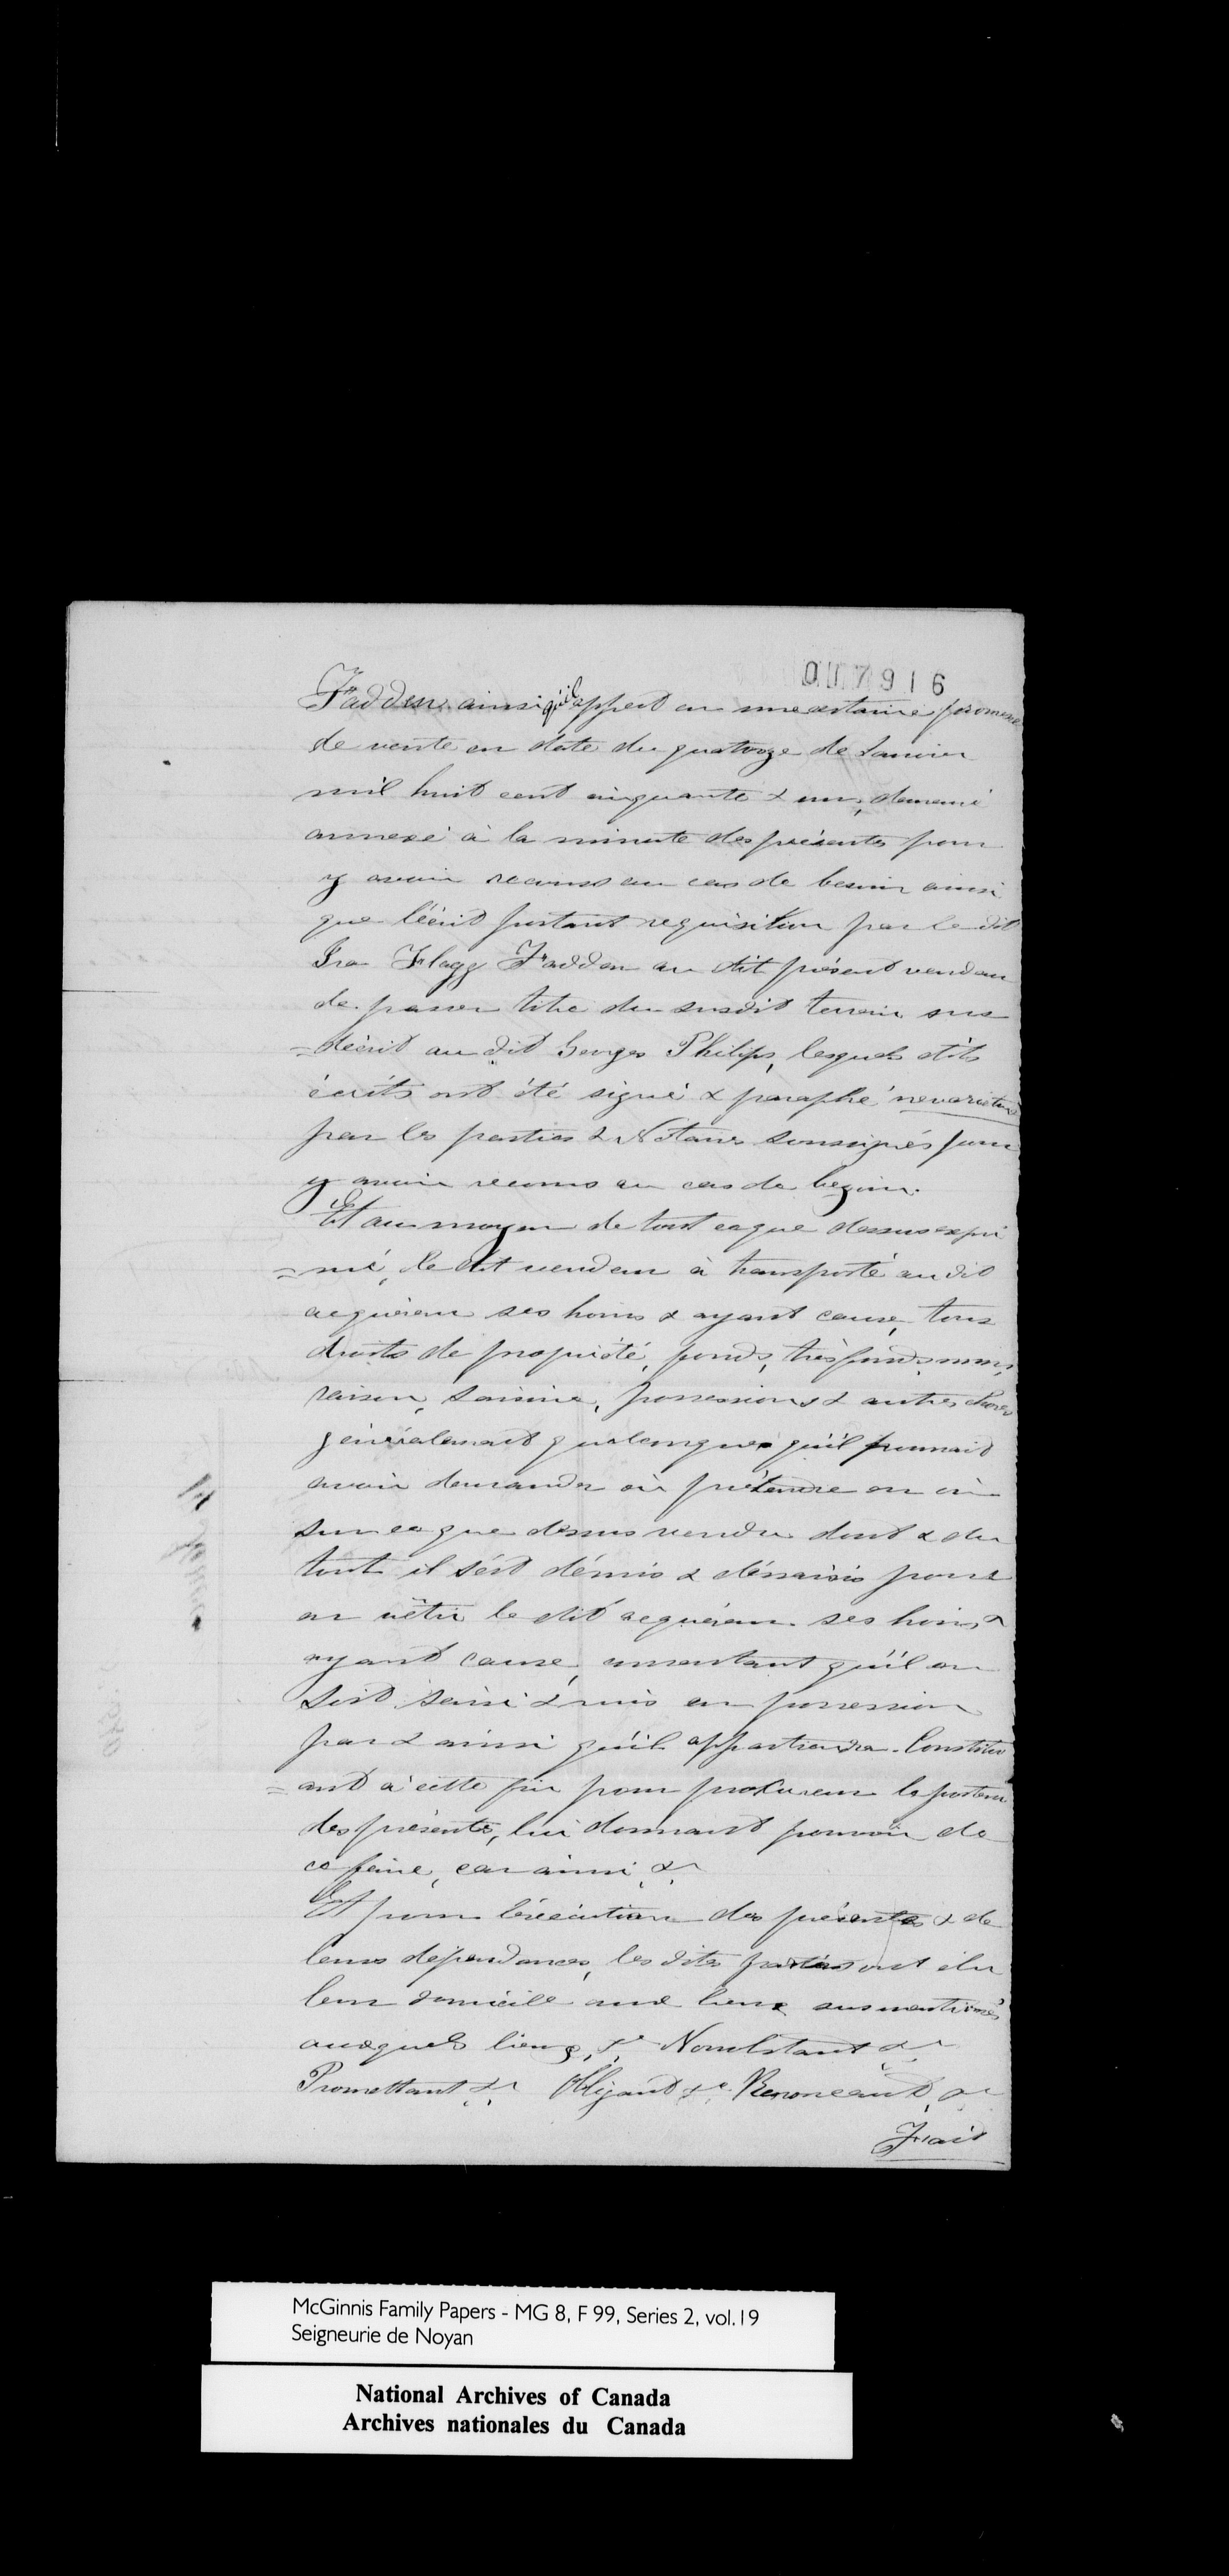 007916
Fadden ainsi qu'il appert en une certaine promesse
de vente en date du quatorze de Janvier
mil huit cent cinquante & un, demeuré
annexé à la minute des présentes pour
y avoir recours au cas de besoin ainsi
que l'écrit portant requisition par le dit
Ira Flagg Fadden au dit présent vendeur
de passer titre du susdit terrein sus
=décrit au dit Georges Philips, lesquels dits
écrits ont été signé & paraphé nevarietur
par les parties & Notaires soussignés pour
y avoir recours au cas de bezoin.
Et au moyen de tout ce que dessus expri
=mé, le dit vendeur à transporté au dit
acquéreur ses hoirs & ayant cause, tous
droits de propriété, fonds, très fonds, noms,
raison, saisine, possessions & autres choses
généralement quelconques qu'il pourrait
avoir demander où prétendre en où
sur ce que dessus vendu dont & du
tout il s'ést démis & déssaisis pour
en vêtir le dit acquéreur ses hoirs &
ayant cause, consentant qu'il en
soit saisi & mis en possession
par & ainsi qu'il appartiendra. Constitu
=ant à cette fin pour procureur le porteur
des présentes, lui donnant pouvoir de
ce faire, car ainsi &c
Et pour l'éxécution des présentes & de
leurs dépendances, les dites parties ont élu
leur domicile aux lieux susmentionnés
auxquels lieux, &c Nonobstant &c
Promettant &c Obligeant &c Renonceant &c
Fait
McGinnis Family Papers - MG 8, F 99, Series 2, vol.19
Seigneurie de Noyan
National Archives of Canada
Archives nationales du Canada